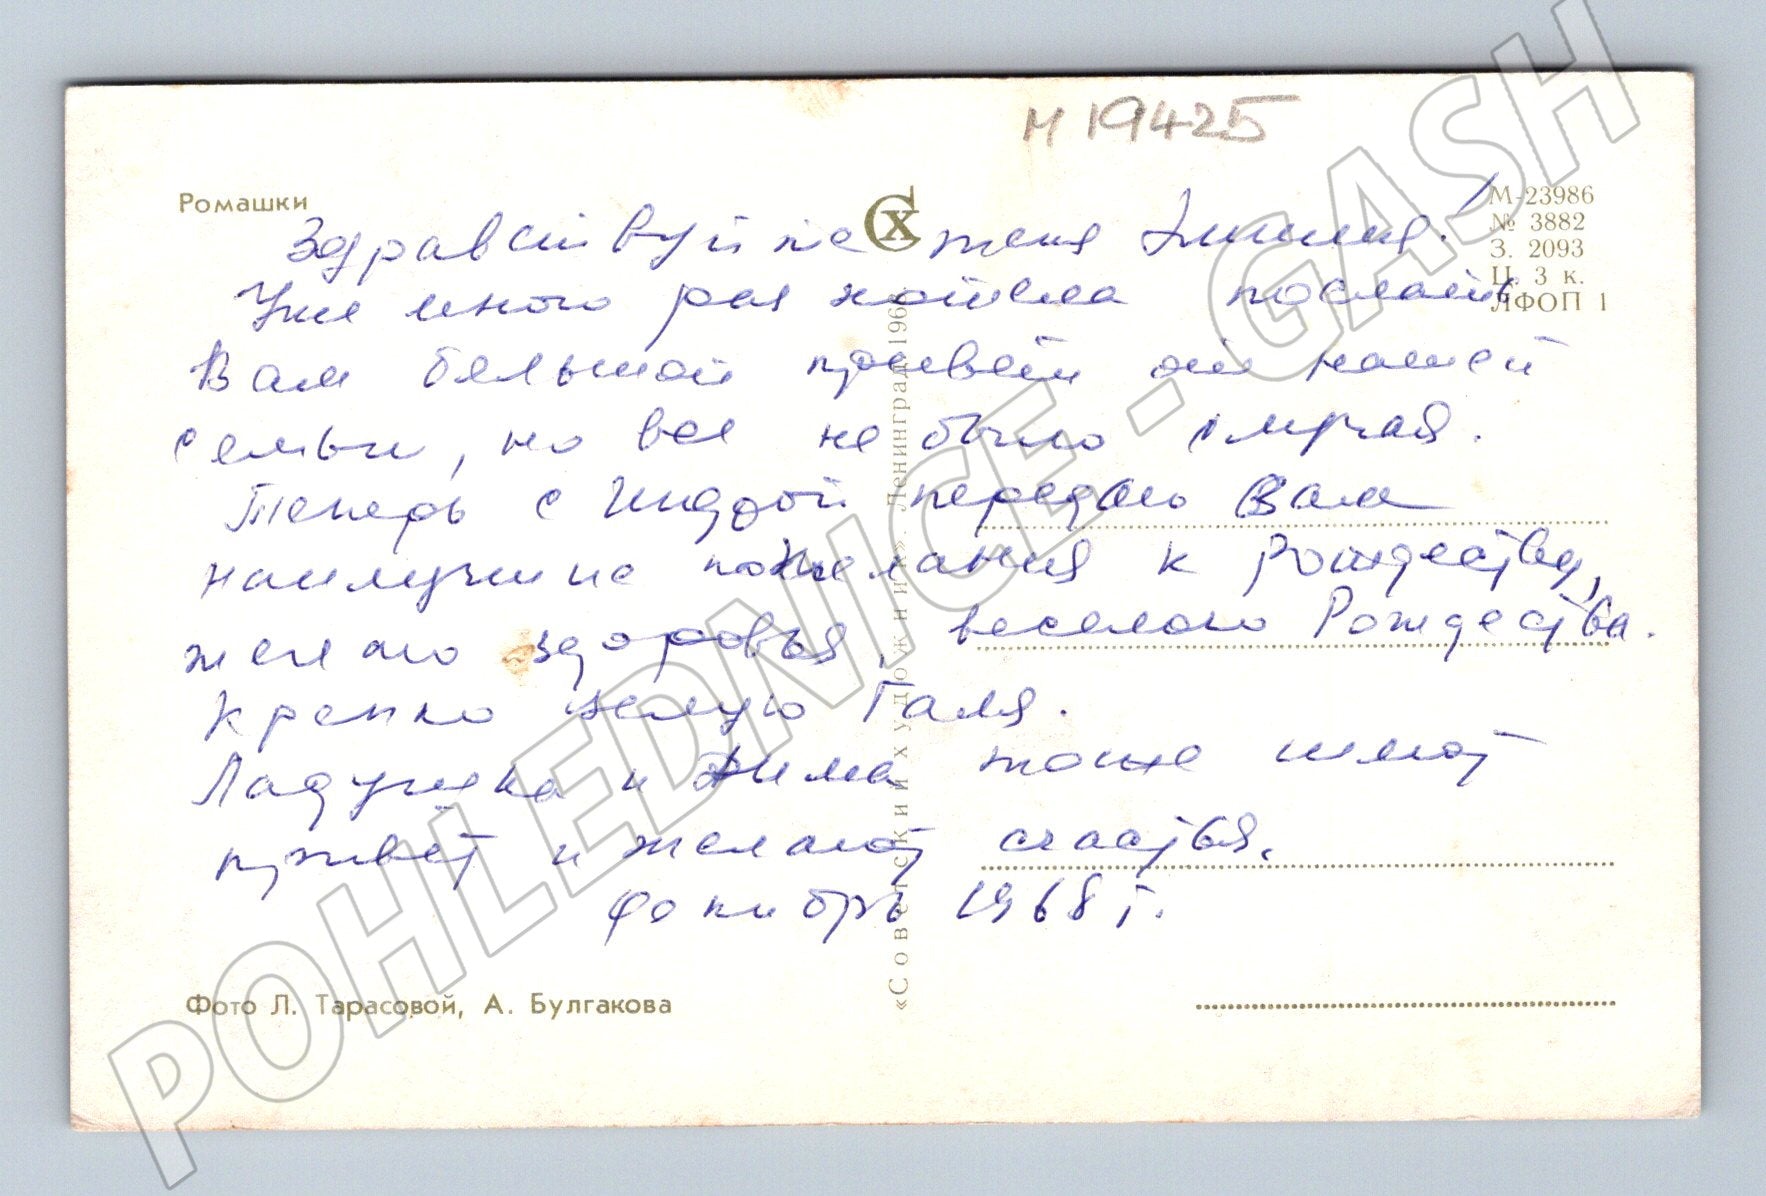 М 19425
Ромашки
СХ
М-23986
№ 3882
З. 2093
Ц. 3 к.
ЛФОП 1
Здравствуйте тетя !
Уже много раз хотела послать
Вам большой привет от нашей
семьи, но все не было случая.
Теперь с передаю Вам
наилучшие пожелания к Рождеству,
желаю здоровья, веселого Рождества.
Крепко целую Галя.
и Дима тоже шлют
привет и желают счастья.
1968 г.
«Советский художник». Ленинград. 196
Фото Л. Тарасовой, А. Булгакова
POHLEDNICE - GASH